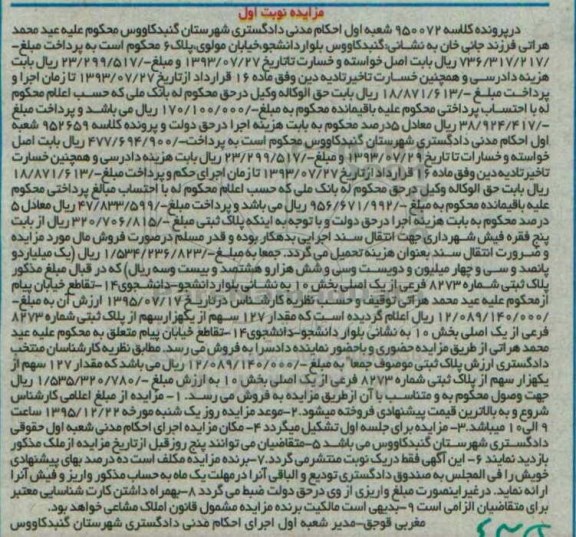 مزایده نوبت اول
درپرونده کلاسه ۹۵۰۰۷۲ شعبه اول احکام مدنی دادگستری شهرستان گنبدکاووس محکوم علیه عید محمد
هراتی فرزند جانی خان به نشانی:گنبدکاووس بلوار دانشجو،خیابان مولوی،پلاک۶ محکوم است به پرداخت مبلغ-
/۷۳۶/۳۱۷/۲۱۷ ریال بابت اصل خواسته و خسارت تاتاریخ ۱۳۹۳/۰۷/۲۷ و مبلغ-/۲۳/۲۹۹/۵۱۷ ریال بابت
هزینه دادرسی و همچنین خسارت تاخیر تادیه دین وفق ماده ۱۶ قرارداد ازتاریخ ۱۳۹۳/۰۷/۲۷ تا زمان اجرا و
پرداخت مبلغ -/۱۸/۸۷۱/۶۱۳ ریال بابت حق الوکاله وکیل درحق محکوم له بانک ملی که حسب اعلام محکوم
له با احتساب پرداختی محکوم علیه باقیمانده محکوم به مبلغ-/۱۷۰/۱۰۰/۰۰۰ ریال می باشد و پرداخت مبلغ
-/۳۸/۹۲۴/۴۱۷ ریال معادل ۵درصد محکوم به بابت هزینه اجرا درحق دولت و پرونده کلاسه ۹۵۲۶۵۹ شعبه
اول احکام مدنی دادگستری شهرستان گنبدکاووس محکوم است به پرداخت-/۴۷۷/۶۹۴/۹۰۰ ریال بابت اصل
خواسته و خسارات تا تاریخ ۱۳۹۳/۰۷/۲۹ و مبلغ-/۲۳/۲۹۹/۵۱۷ ریال بابت هزینه دادرسی و همچنین خسارت
تاخیر تادیه دین وفق ماده ۱۶ قرارداد ازتاریخ ۱۳۹۳/۰۷/۲۷ تا زمان اجرای حکم و پرداخت مبلغ-/۱۸/۸۷۱/۶۱۳
ریال بابت حق الوکاله وکیل درحق محکوم له بانک ملی که حسب اعلام محکوم له با احتساب مبالغ پرداختی محکوم
علیه باقیمانده محکوم به مبلغ-/۹۵۶/۶۷۱/۹۹۲ ریال می باشد و پرداخت مبلغ-/۴۷/۸۳۳/۵۹۹ ریال معادل ۵
در صد محکوم به بابت هزینه اجرا درحق دولت و با توجه به اینکه پلاک ثبتی مبلغ -/۳۲۰/۷۰۶/۸۱۵ ریال از بابت
پنج فقره فیش شهرداری جهت انتقال سند اجرایی بدهکار بوده و قدر مسلم درصورت فروش مال مورد مزایده
و ضرورت انتقال سند بعنوان هزینه تحمیل می گردد. جمعا به مبلغ-/۱/۵۳۴/۲۳۶/۸۲۳ ریال (یک میلیاردو
پانصد و سی و چهار میلیون و دویست وسی و شش هزار و هشتصد و بیست وسه ریال) که در قبال مبلغ مذکور
پلاک ثبتی شماره ۸۲۷۳ فرعی از یک اصلی بخش ۱۰ به نشانی بلوار دانشجو-دانشجوی۱۴-تقاطع خیابان پیام
ازمحکوم علیه عید محمد هراتی توقیف و حسب نظریه کارشناس درتاریخ ۱۳۹۵/۰۷/۱۷ ارزش آن به مبلغ-
/۱۲/۰۸۹/۱۴۰/۰۰۰ ریال اعلام گردیده است که مقدار ۱۲۷ سهم از یکهزارسهم از پلاک ثبتی شماره ۸۲۷۳
فرعی از یک اصلی بخش ۱۰ به نشانی بلوار دانشجو-دانشجوی۱۴-تقاطع خیابان پیام متعلق به محکوم علیه عید
محمد هراتی از طریق مزایده حضوری و باحضور نماینده دادسرا به فروش می رسد. مطابق نظریه کارشناسان منتخب
دادگستری ارزش پلاک ثبتی موصوف جمعا" به مبلغ -/۱۲/۰۸۹/۱۴۰/۰۰۰ ریال می باشد که مقدار ۱۲۷ سهم از
یکهزار سهم از پلاک ثبتی شماره ۸۲۷۳ فرعی از یک اصلی بخش ۱۰ به ارزش مبلغ -/۱/۵۳۵/۳۲۰/۷۸۰ ریال
جهت وصول محکوم به و متناسب با آن ازطریق مزایده به فروش می رسد. ۱- مزایده از مبلغ اعلامی کارشناس
شروع و به بالاترین قیمت پیشنهادی فروخته میشود.۲-موعد مزایده روز یک شنبه مورخه ۱۳۹۵/۱۲/۲۲ ساعت
۹ الی۱۰ میباشد.۳- مزایده برای جلسه اول تشکیل میگردد ۴- مکان مزایده اجرای احکام مدنی شعبه اول حقوقی
دادگستری شهرستان گنبدکاووس می باشد ۵-متقاضیان می توانند پنج روزقبل ازتاریخ مزایده ازملک مذکور
بازدید نمایند ۶- این آگهی فقط دریک نوبت منتشر می گردد.۷-برنده مزایده مکلف است ده درصد بهای پیشنهادی
خویش را فی المجلس به صندوق دادگستری تودیع و الباقی آنرا درمهلت یک ماه به حساب مذکور واریز و فیش آنرا
ارائه نماید. درغیراینصورت مبلغ واریزی از وی درحق دولت ضبط می گردد ۸-بهمراه داشتن کارت شناسایی معتبر
برای متقاضیان الزامی است ۹-بدیهی است مالکیت برنده مزایده مشمول قانون املاک مشاعی خواهد بود.
مغربی قوجق-مدیر شعبه اول اجرای احکام مدنی دادگستری شهرستان گنبدکاووس